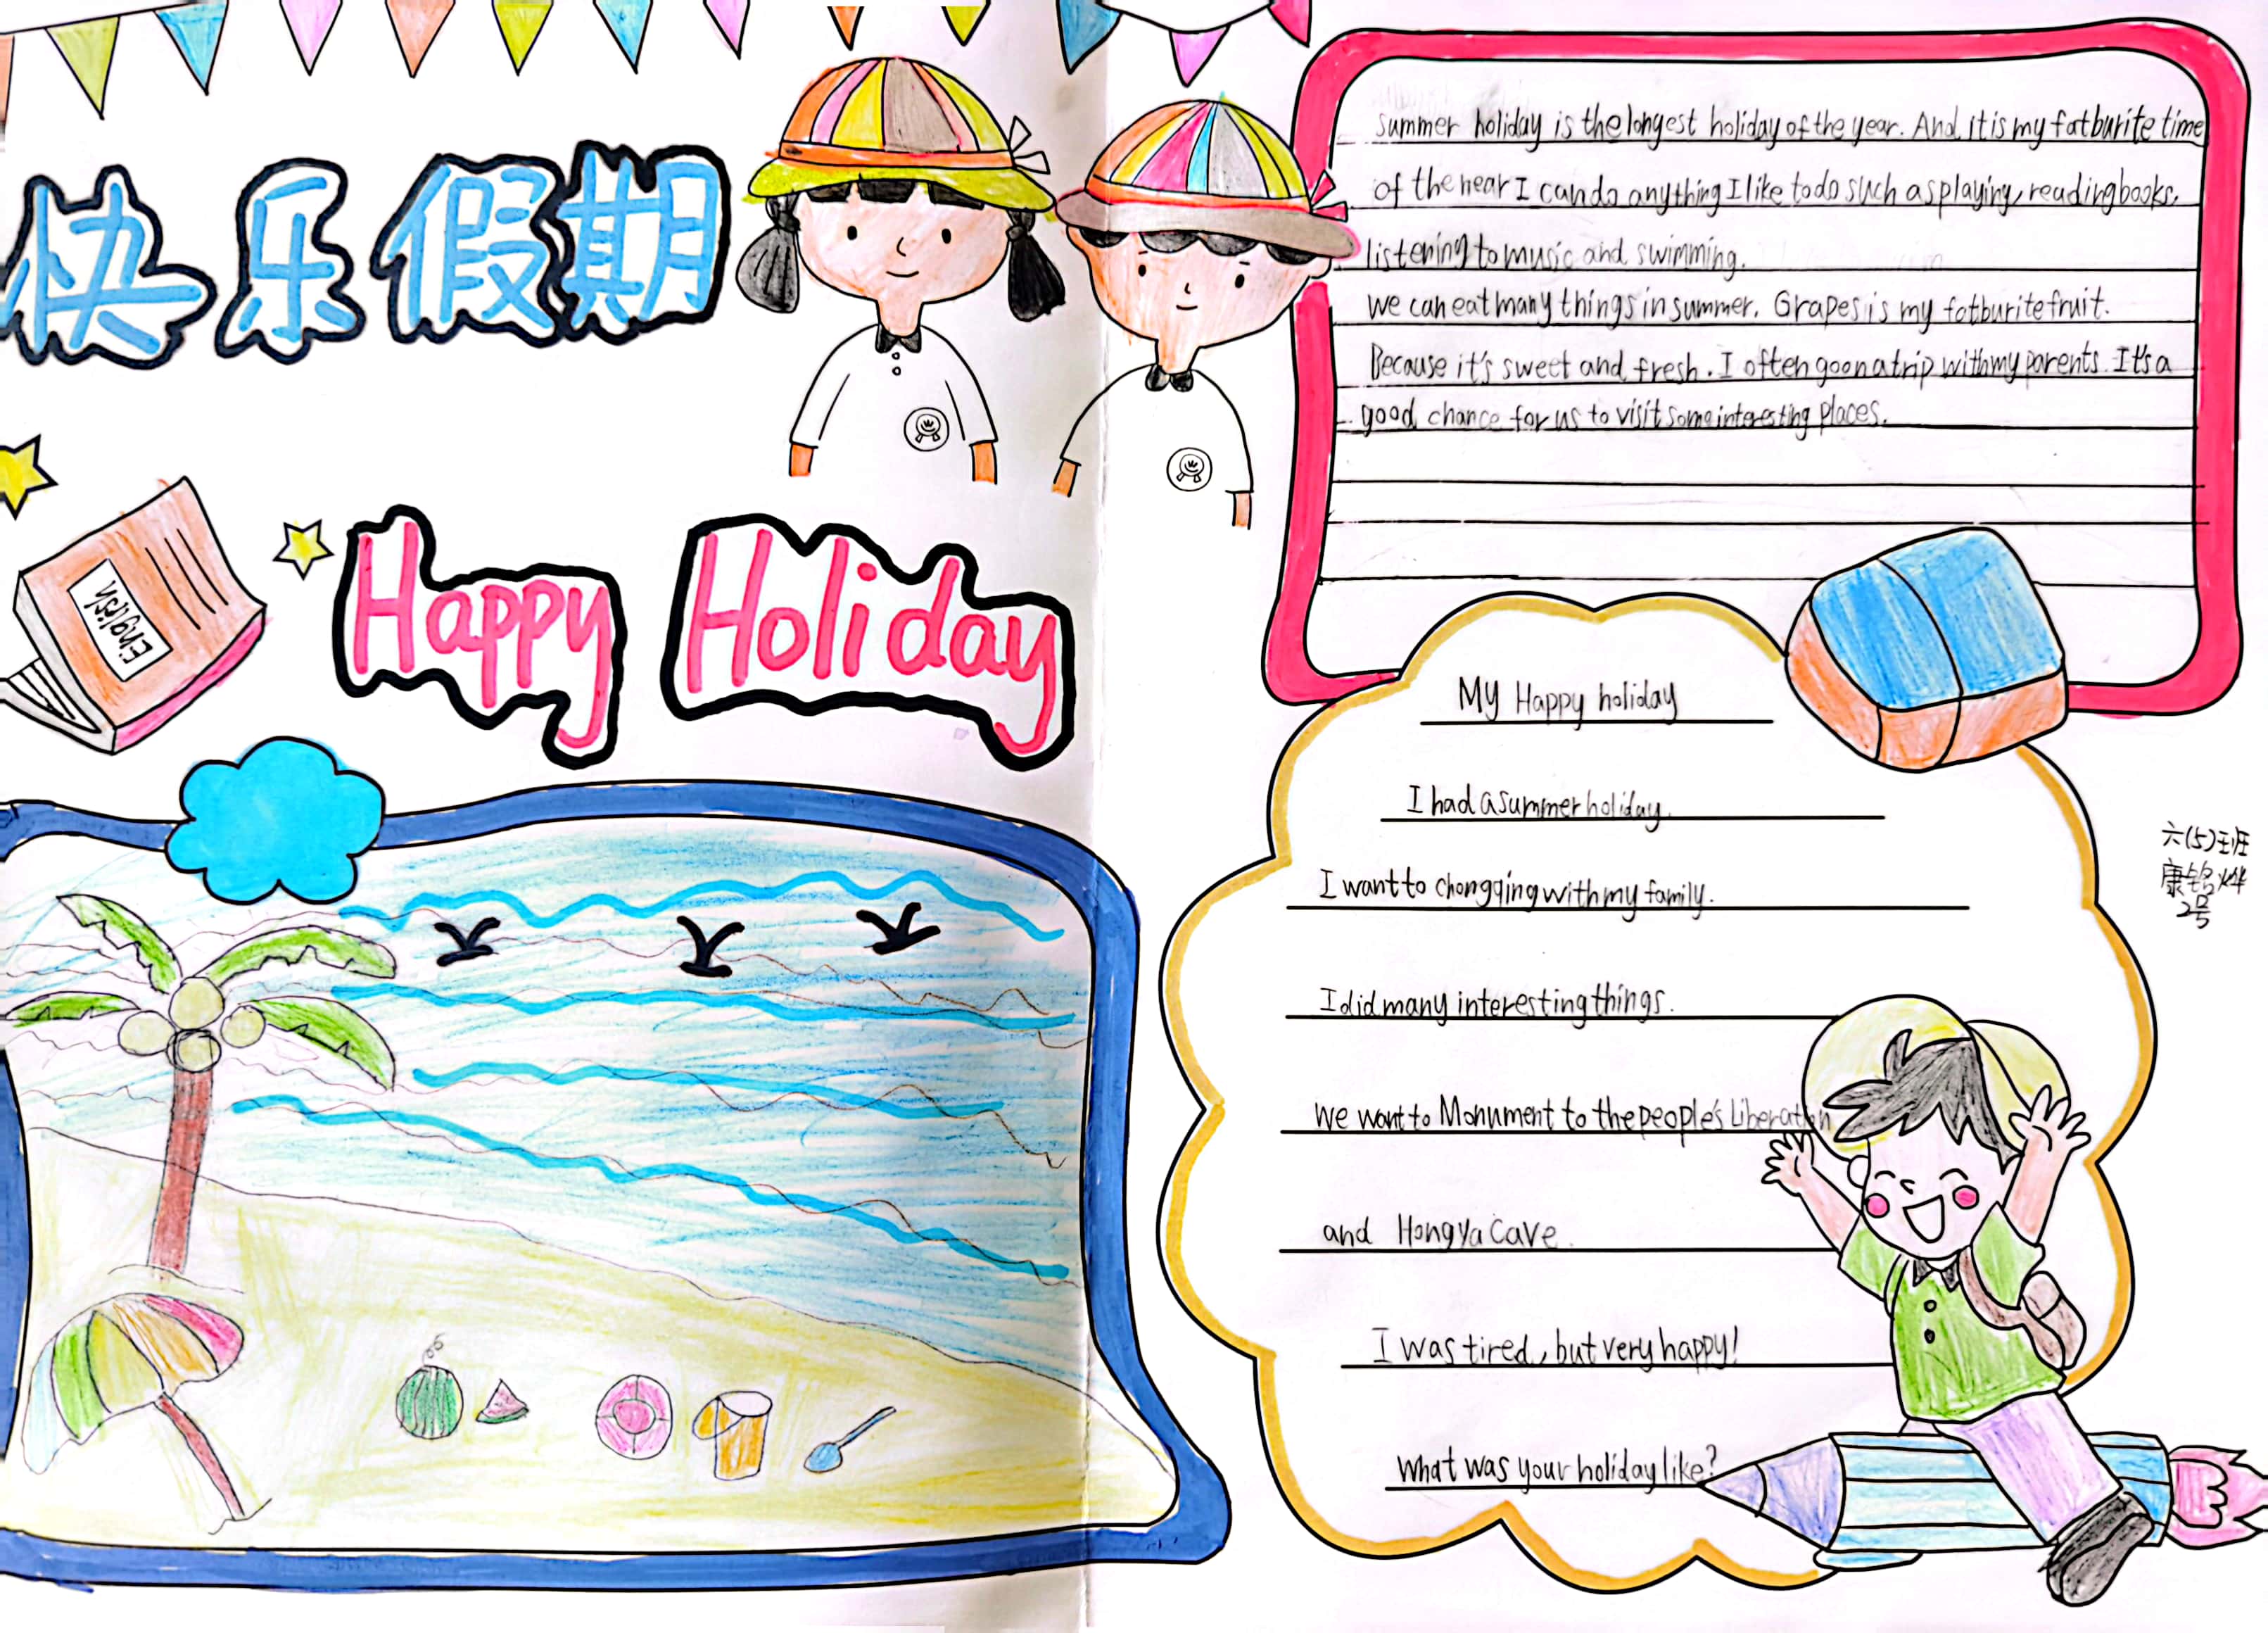 快乐假期
English
Happy Holiday
summer holiday is the longest holiday of the year. And it is my fatburite time
of the near I can do anything I like to do such as playing, reading books,
listening to music and swimming.
we can eat many things in summer. Grapes is my fatburite fruit.
Because it's sweet and fresh. I often go on a trip with my parents. It's a
good chance for us to visit some interesting places.
My Happy holiday
I had a summer holiday.
I want to chongqing with my family.
I did many interesting things.
we want to Monument to the people's Liberation
and Hongya Cave.
I was tired, but very happy!
what was your holiday like?
六(5)班
康铭烨
2号